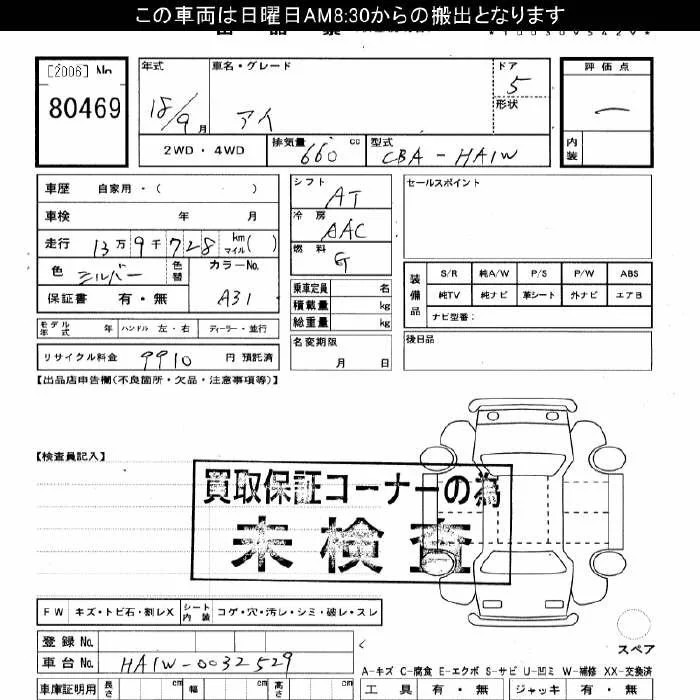 この車両は日曜日AM8:30からの搬出となります
[2006] No
80469
年式
18/9月
車名・グレード
アイ
ドア
5
形状
評価点
ー
内装
2WD・4WD
排気量 660 cc
型式 CBA-HA1W
車歴 自家用・( )
車検 年 月
走行 13万9千728 km マイル( )
色 シルバー 色替
カラーNo.
A31
保証書 有・無
シフト
AT
冷房
AAC
燃料
G
乗車定員 名
積載量 kg
総重量 kg
名変期限
月 日
セールスポイント
装備品
S/R 純A/W P/S P/W ABS
純TV 純ナビ 革シート 外ナビ エアB
ナビ型番：
後日品
モデル年式 年 ハンドル 左・右 ディーラー・並行
リサイクル料金 9910 円 預託済
【出品店申告欄(不良箇所・欠品・注意事項等)】
【検査員記入】
買取保証コーナーの為
未検査
FW キズ・トビ石・割レX シート内装 コゲ・穴・汚レ・シミ・破レ・スレ
登録No.
車台No. HA1W-0032529
スペア
A-キズ C-腐食 E-エクボ S-サビ U-凹ミ W-補修 XX-交換済
車庫証明用 長さ cm 幅 cm 高さ cm
工具 有・無 ジャッキ 有・無